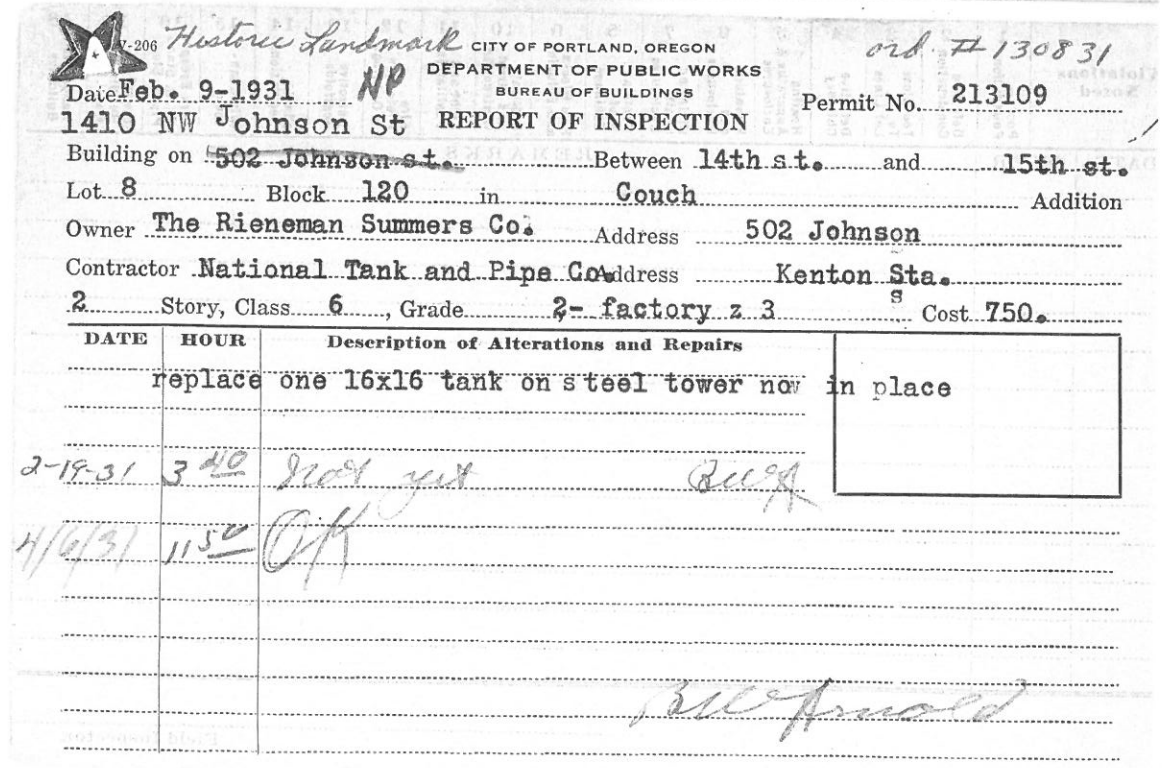 -206 Historic Landmark CITY OF PORTLAND, OREGON ord #130831
DEPARTMENT OF PUBLIC WORKS
Date Feb. 9-1931 NP BUREAU OF BUILDINGS Permit No. 213109
1410 NW Johnson St REPORT OF INSPECTION
Building on 502 Johnson st. Between 14th st. and 15th st.
Lot 8 Block 120 in Couch Addition
Owner The Rieneman Summers Co. Address 502 Johnson
Contractor National Tank and Pipe Co. Address Kenton Sta.
2 Story, Class 6, Grade 2- factory z 3 s Cost 750.
DATE HOUR Description of Alterations and Repairs
replace one 16x16 tank on steel tower now in place
2-19-31 3 40 Not yet BWA
4/6/31 11 50 OK
BW Arnold
Field Inspector